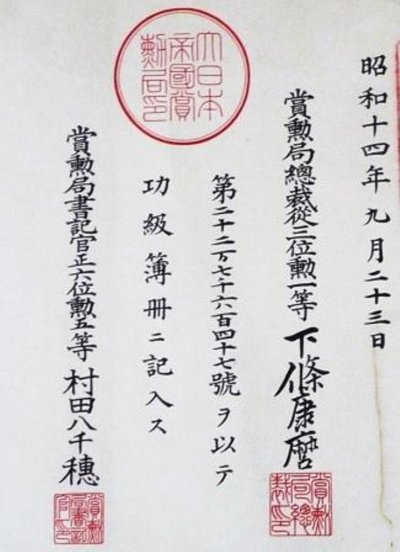 昭和十四年九月二十三日
賞勲局總裁從三位勲一等 下條康麿
第二十二万七千六百四十七號ヲ以テ
功級簿冊ニ記入ス
賞勲局書記官正六位勲五等 村田八千穗
大日本帝國賞勲局印
賞勲局總裁印
賞勲局書記官印